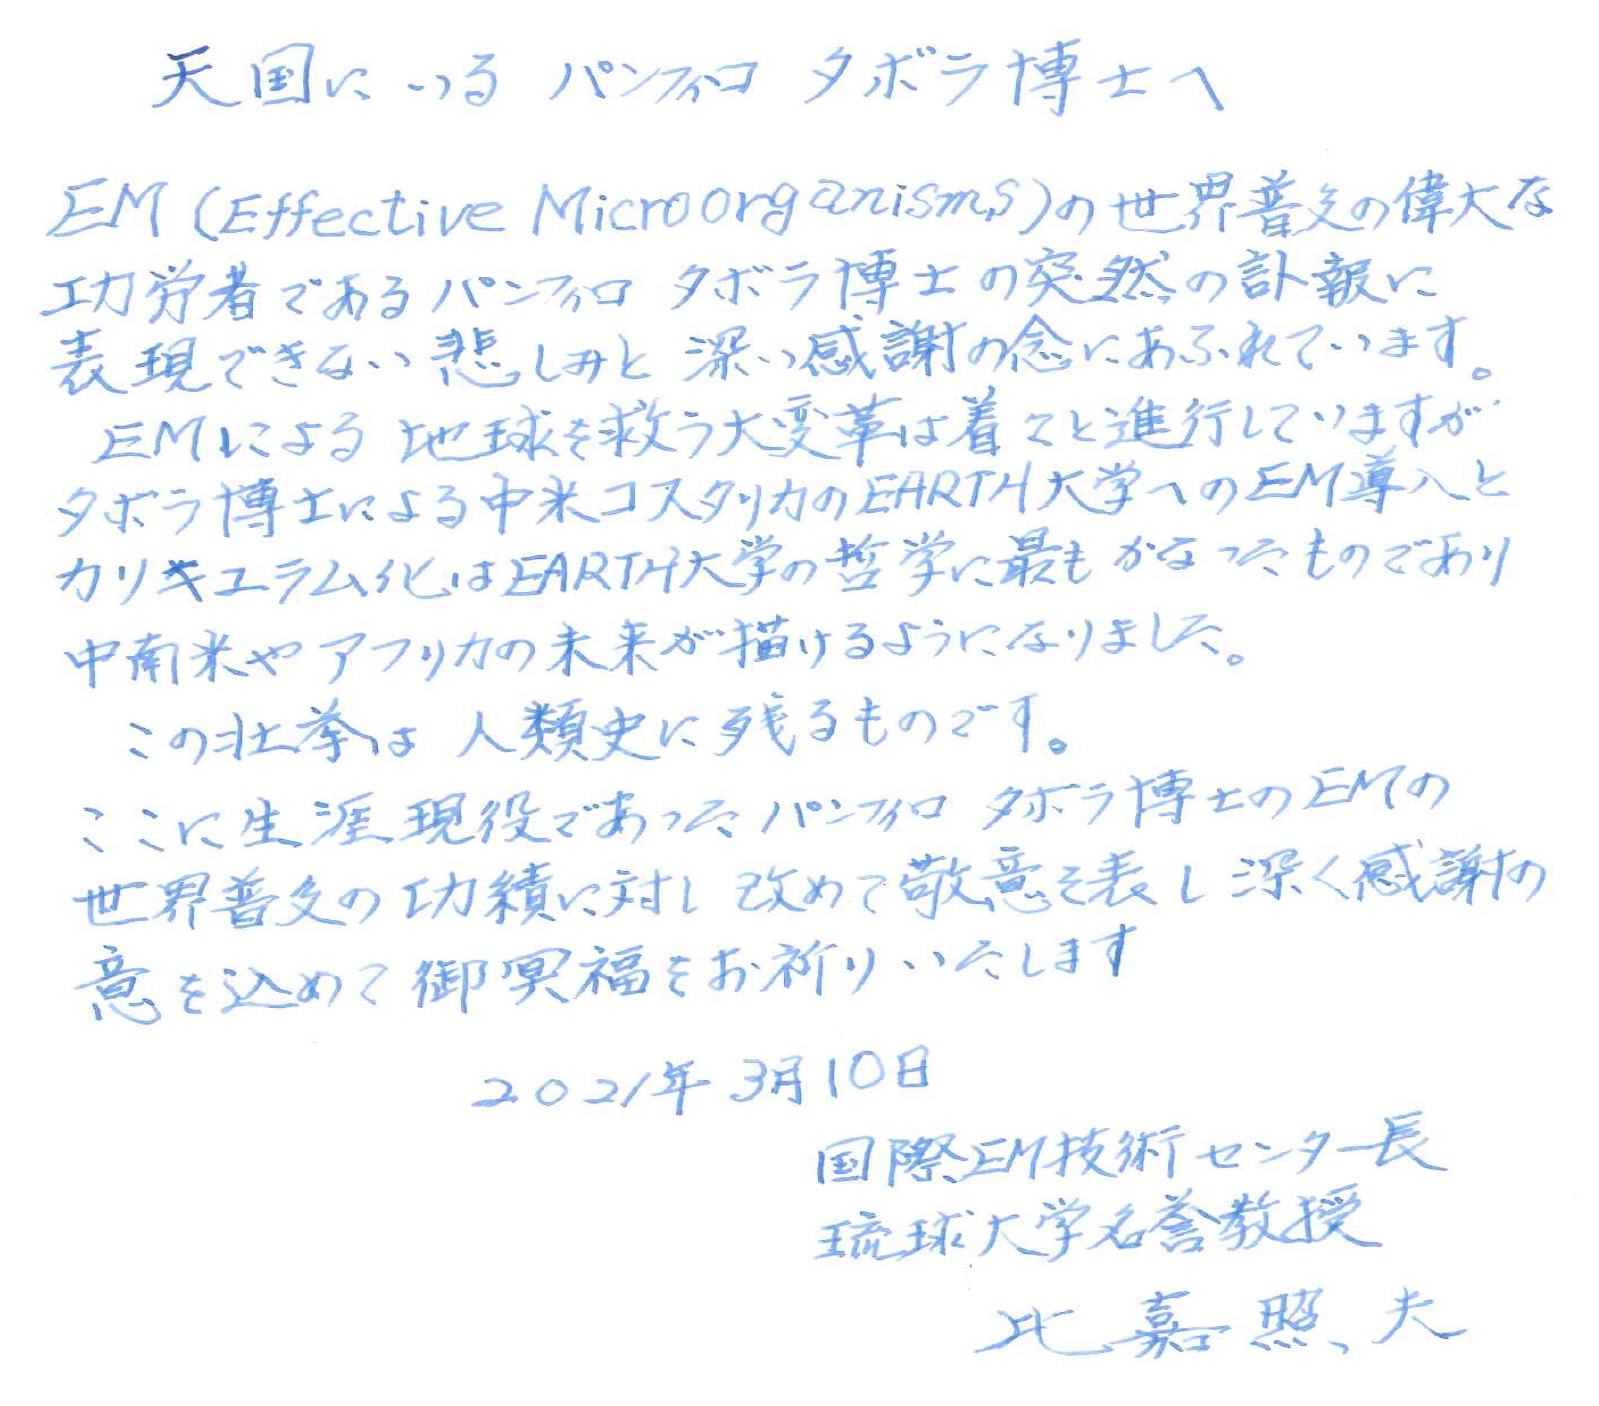 天国にいる パンフィロ タボラ博士へ
EM (Effective Microorganisms)の世界普及の偉大な
功労者であるパンフィロ タボラ博士の突然の訃報に
表現できない悲しみと深い感謝の念にあふれています。
EMによる地球を救う大変革は着々と進行していますが
タボラ博士による中米コスタリカのEARTH大学へのEM導入と
カリキュラム化はEARTH大学の哲学に最もかなったものであり
中南米やアフリカの未来が描けるようになりました。
この壮挙は人類史に残るものです。
ここに生涯現役であったパンフィロ タボラ博士のEMの
世界普及の功績に対し改めて敬意を表し深く感謝の
意を込めて御冥福をお祈りいたします
2021年3月10日
国際EM技術センター長
琉球大学名誉教授
比嘉照夫